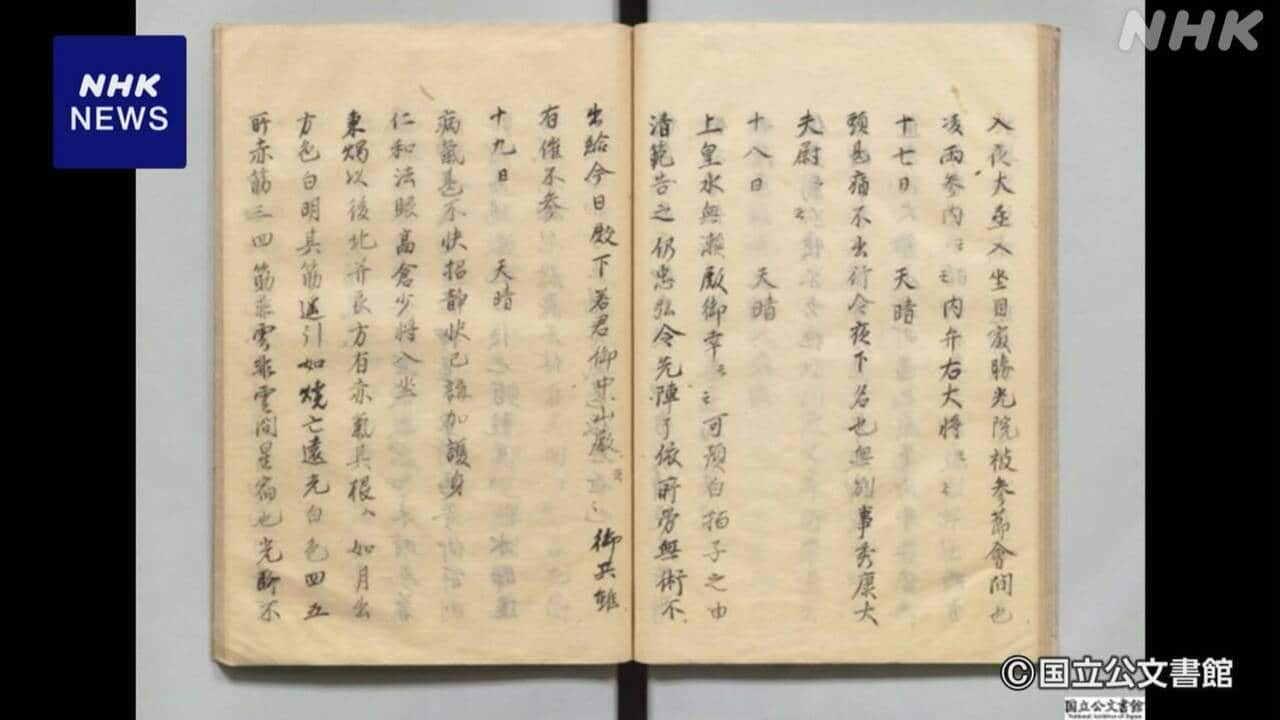 NHK
NEWS
NHK
入夜大丞入坐自最勝光院被参節會間也
凌雨参内〻〻内弁右大将〻〻
十七日 天晴
頭甚痛不出行今夜下名也無別事秀康大
夫尉〻〻
十八日 天晴
上皇水無瀬殿御幸〻〻可預白拍子之由
清範告之仍忠弘令先陣了依所労無術不
出給今日殿下若君御中山殿〻〻御共雖
有催不参
十九日 天晴
病氣甚不快招静快已講加護身
仁和法眼高倉少将入坐
秉燭以後北并艮方有赤氣其根ハ如月出
方色白明其筋遥引如焼亡遠光白色四五
所赤筋三四筋非雲非雲間星宿也光聊不
©国立公文書館
国立公文書館
National Archives of Japan